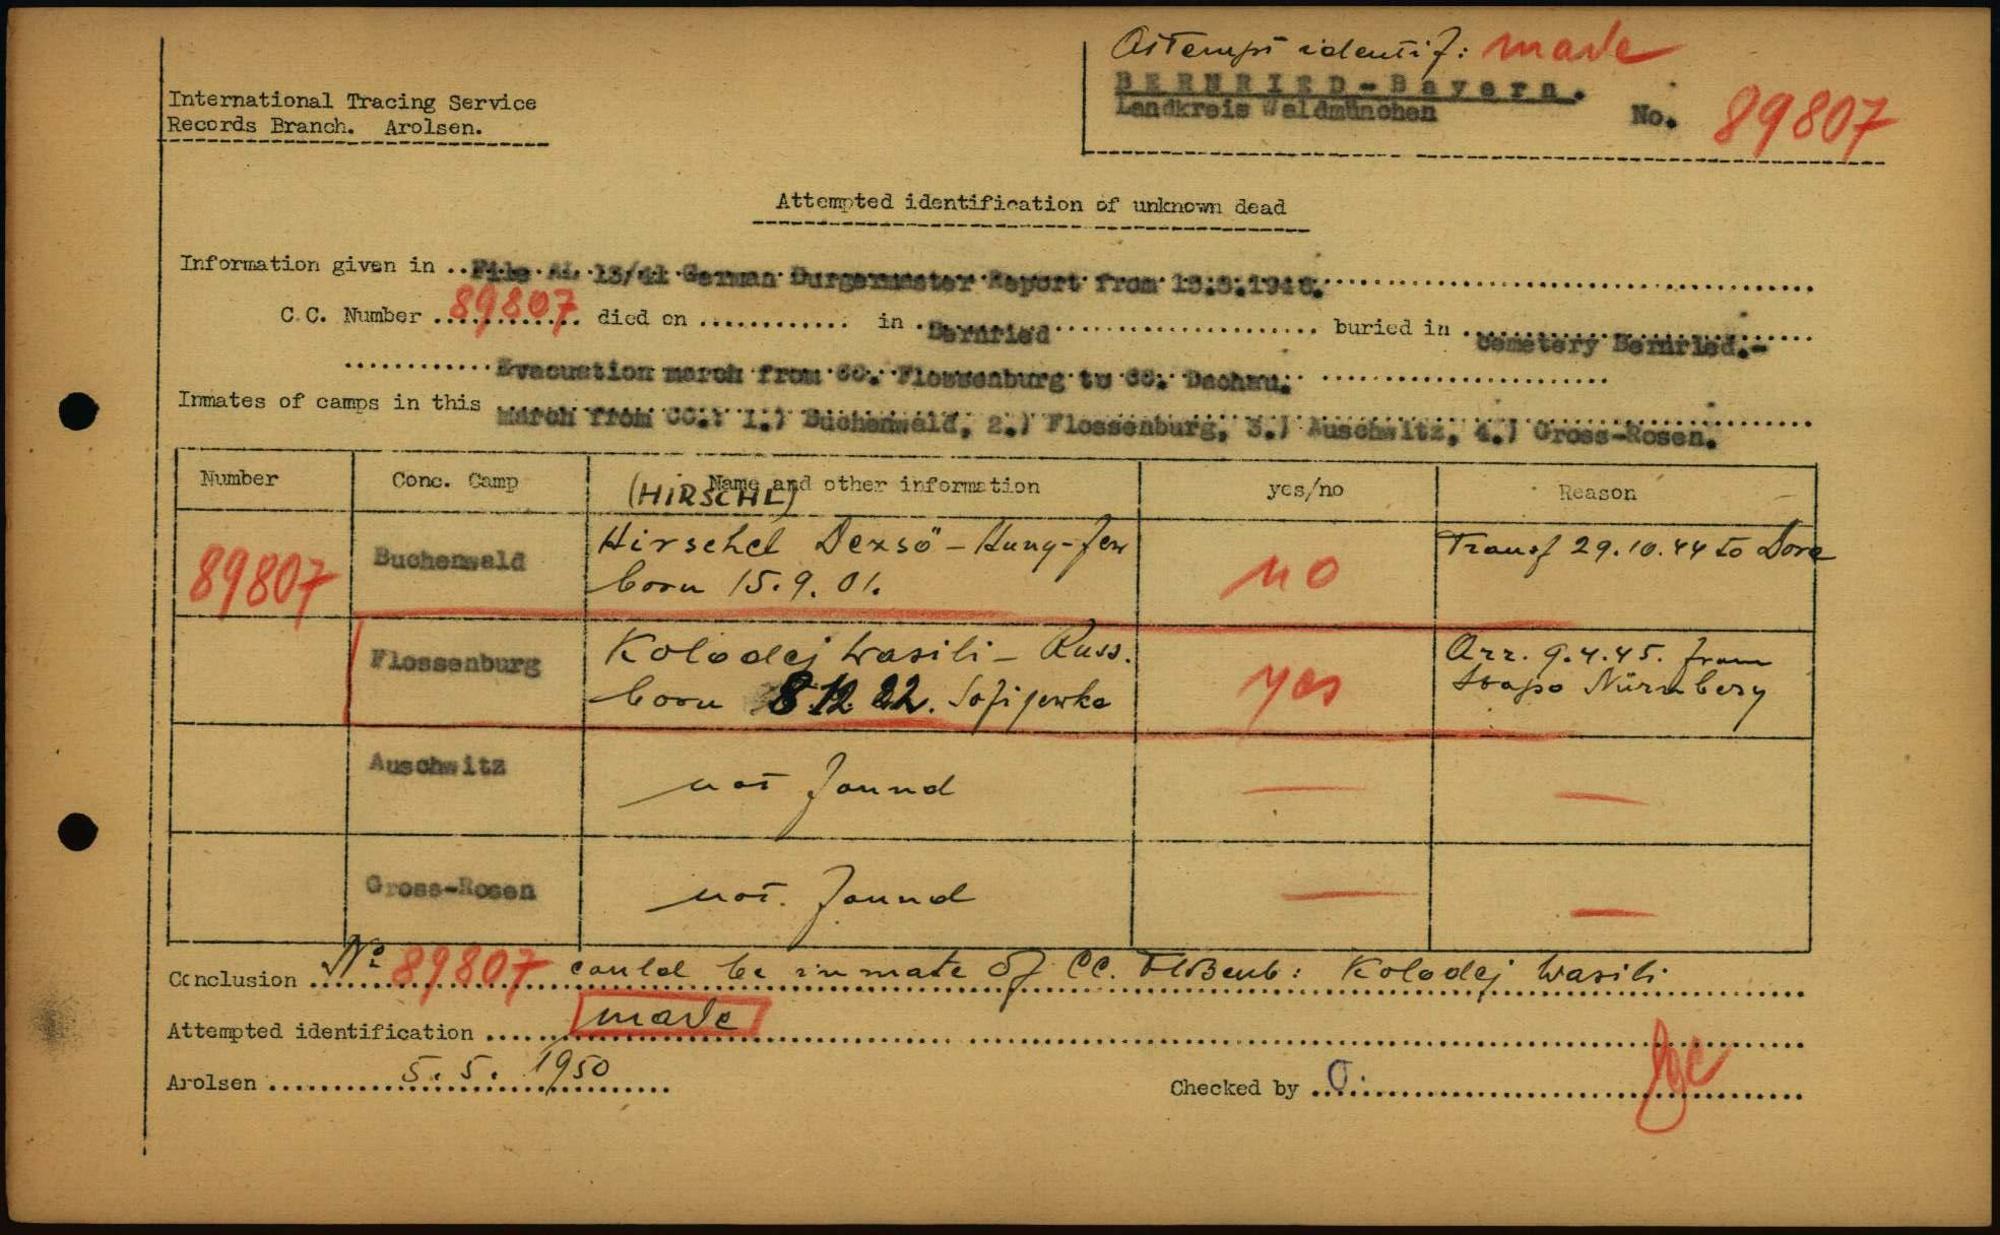 Attempt identif: made
BERNRIED-Bayern.
Landkreis Waldmünchen
No. 89807
International Tracing Service
Records Branch. Arolsen.
Attempted identification of unknown dead
Information given in .. File AL 13/41 German Burgermaster Report from
C.C. Number 89807 died on ............ in Bernried buried in cemetery Bernried.-
Evacuation march from CC. Flossenburg to CC. Dachau.
Inmates of camps in this march from CC.: 1.) Buchenwald, 2.) Flossenburg, 3.) Auschwitz, 4.) Gross-Rosen.
Number Conc. Camp Name and other information yes/no Reason
(HIRSCHL)
89807 Buchenwald Hirschel Dezsö - Hung-Jew no Transf 29.10.44 to Dora
born 15.9.01.
Flossenburg Kolodej Wasili - Russ. yes Arr. 9.4.45. from
born 8.12.22. Sofijewka Stapo Nürnberg
Auschwitz not found — —
Gross-Rosen not. found — —
Conclusion No 89807 could be inmate of CC. Floßenb: Kolodej Wasili
Attempted identification made
Arolsen 5.5.1950
Checked by